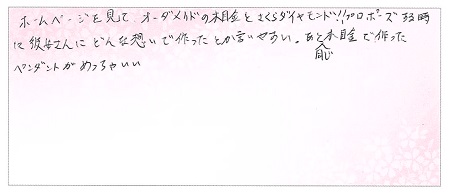 ホームページを見て オーダーメイドの木目金とさくらダイヤモンド!!プロポーズする時
に彼女さんにどんな想いで作ったとか言いやすい。あと同じ木目金で作った
ペンダントがめっちゃいい